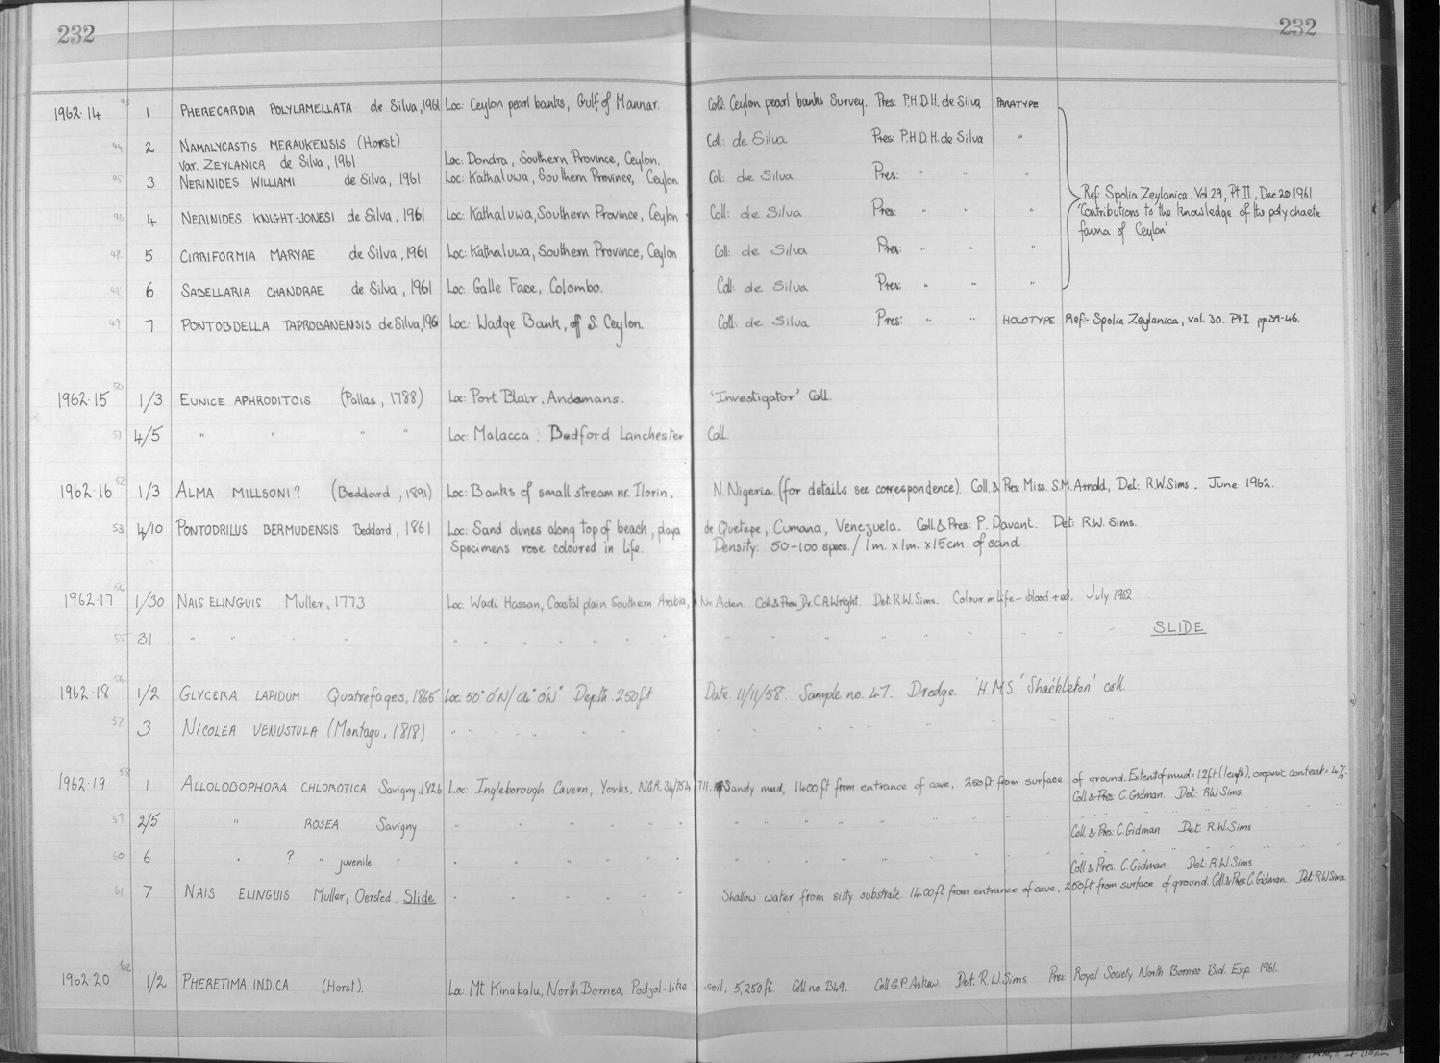 232 232
1962·14 43 1 PHERECARDIA POLYLAMELLATA de Silva, 1961 Loc: Ceylon pearl banks, Gulf of Mannar. Coll: Ceylon pearl banks Survey. Pres: P.H.D.H. de Silva PARATYPE
44 2 NAMALYCASTIS MERAUKENSIS (Horst) Col: de Silva Pres: P.H.D.H. de Silva "
var. ZEYLANICA de Silva, 1961 Loc: Dondra, Southern Province, Ceylon.
45 3 NERINIDES WILLIAMI de Silva, 1961 Loc: Kathaluwa, Southern Province, Ceylon Col: de Silva Pres: " " "
Ref: Spolia Zeylanica. Vol 29, Pt II, Dec 20 1961
46 4 NERINIDES KNIGHT-JONESI de Silva, 1961 Loc: Kathaluwa, Southern Province, Ceylon Coll: de Silva Pres: " " "
'Contributions to the knowledge of the polychaete
fauna of Ceylon'
47 5 CIRRIFORMIA MARYAE de Silva, 1961 Loc: Kathaluwa, Southern Province, Ceylon Coll: de Silva Pres: " " "
48 6 SABELLARIA CHANDRAE de Silva, 1961 Loc: Galle Face, Colombo. Coll: de Silva Pres: " " "
49 7 PONTOBDELLA TAPROBANENSIS de Silva, 1961 Loc: Wadge Bank, off S. Ceylon. Coll: de Silva Pres: " " HOLOTYPE Ref:- Spolia Zeylanica, vol. 30. Pt I pp 39-46.
1962·15 50 1/3 EUNICE APHRODITOIS (Pallas, 1788) Loc: Port Blair, Andamans. 'Investigator' Coll.
51 4/5 " " " " Loc: Malacca. Bedford Lanchester Coll.
1962·16 52 1/3 ALMA MILLSONI? (Beddard, 1891) Loc: Banks of small stream nr. Ilorin, N. Nigeria (for details see correspondence). Coll. & Pres Miss. S.M. Arnold, Det: R.W. Sims. June 1962.
53 4/10 PONTODRILUS BERMUDENSIS Beddard, 1861 Loc: Sand dunes along top of beach, playa de Quetepe, Cumana, Venezuela. Coll & Pres: P. Davant. Det: R.W. Sims.
Specimens rose coloured in life. Density: 50-100 specs./1m. x 1m. x 15cm of sand
1962·17 54 1/30 NAIS ELINGUIS Muller, 1773 Loc: Wadi Hassan, Coastal plain Southern Arabia, Nr. Aden. Col & Pres Dr. C.A. Wright. Det: R.W. Sims. Colour in life - blood red. July 1962
55 31 " " " " " " " " " " SLIDE
1962·18 56 1/2 GLYCERA LAPIDUM Quatrefages, 1865 Loc 50° 0'N/ 0'W Depth 250ft Date 11/11/58. Sample no. 47. Dredge. 'H.M.S' Shackleton' coll.
57 3 NICOLEA VENUSTULA (Montagu, 1818) " " " " " "
1962·19 58 1 ALLOLOBOPHORA CHLOROTICA Savigny, 1826 Loc: Ingleborough Cavern, Yorks, N.G.R. 34/754 711. Sandy mud, 1400ft from entrance of cave, 250ft from surface of ground. Extent of mud: 12ft (length), organic content = 4%.
Coll & Pres: C. Gidman. Det: R.W Sims
59 2/5 " ROSEA Savigny " " " " " "
Coll. & Pres: C. Gidman Det: R.W. Sims
60 6 " ? " juvenile " " " " " "
Coll & Pres. C. Gidman Det: R.W. Sims
61 7 NAIS ELINGUIS Muller, Oersted. Slide " " " " Shallow water from silty substrate 1400ft from entrance of cave, 250ft from surface of ground. Coll & Pres C. Gidman. Det: R.W. Sims.
1962·20 62 1/2 PHERETIMA INDICA (Horst). Loc: Mt Kinakalu, North Borneo, Podzol-like soil, 5,250ft. Coll no B49. Coll G.P. Askew. Det. R.W. Sims Pres: Royal Society North Borneo Biol. Exp. 1961.